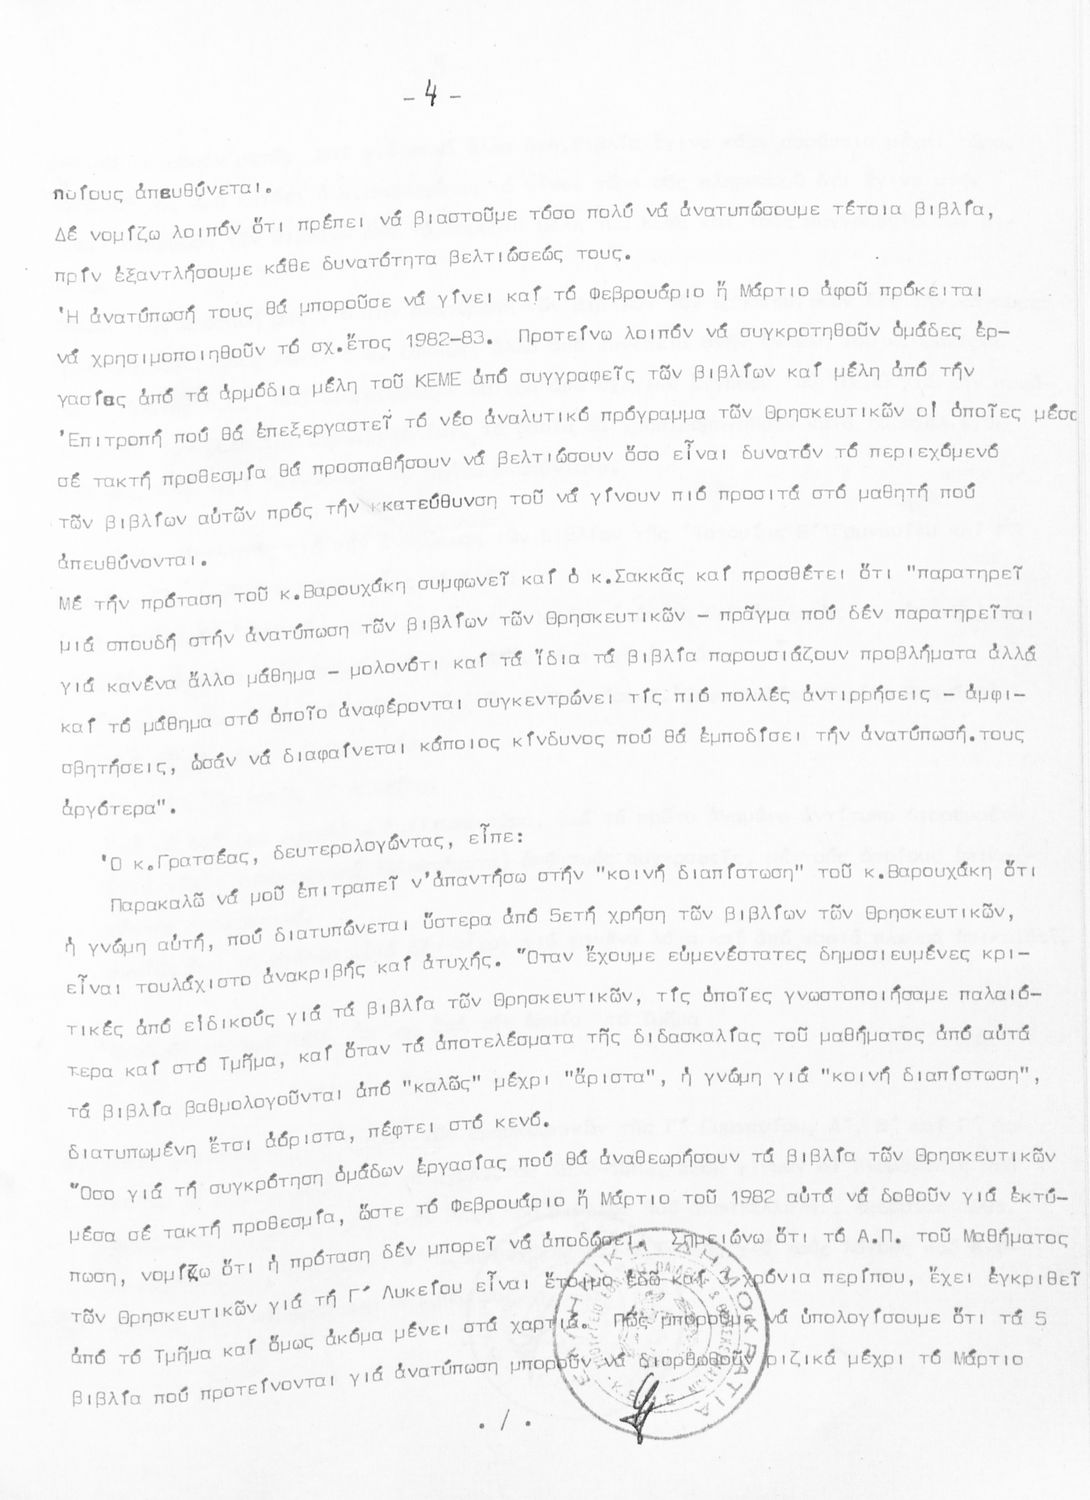 - 4 -
ποίους ἀπευθύνεται.
Δέ νομίζω λοιπόν ὅτι πρέπει νά βιαστοῦμε τόσο πολύ νά ἀνατυπώσουμε τέτοια βιβλία,
πρίν ἐξαντλήσουμε κάθε δυνατότητα βελτιώσεώς τους.
Ἡ ἀνατύπωσή τους θά μποροῦσε νά γίνει καί τό Φεβρουάριο ἤ Μάρτιο ἀφοῦ πρόκειται
νά χρησιμοποιηθοῦν τό σχ.ἔτος 1982-83. Προτείνω λοιπόν νά συγκροτηθοῦν ὁμάδες ἐρ-
γασίας ἀπό τά ἁρμόδια μέλη τοῦ ΚΕΜΕ ἀπό συγγραφεῖς τῶν βιβλίων καί μέλη ἀπό τήν
Ἐπιτροπή πού θά ἐπεξεργαστεῖ τό νέο ἀναλυτικό πρόγραμμα τῶν Θρησκευτικῶν οἱ ὁποῖες μέσα
σέ τακτή προθεσμία θά προσπαθήσουν νά βελτιώσουν ὅσο εἶναι δυνατόν τό περιεχόμενό
τῶν βιβλίων αὐτῶν πρός τήν κκατεύθυνση τοῦ νά γίνουν πιό προσιτά στό μαθητή πού
ἀπευθύνονται.
Μέ τήν πρόταση τοῦ κ.Βαρουχάκη συμφωνεῖ καί ὁ κ.Σακκᾶς καί προσθέτει ὅτι "παρατηρεῖ
μιά σπουδή στήν ἀνατύπωση τῶν βιβλίων τῶν Θρησκευτικῶν - πρᾶγμα πού δέν παρατηρεῖται
γιά κανένα ἄλλο μάθημα - μολονότι καί τά ἴδια τά βιβλία παρουσιάζουν προβλήματα ἀλλά
καί τό μάθημα στό ὁποῖο ἀναφέρονται συγκεντρώνει τίς πιό πολλές ἀντιρρήσεις - ἀμφι-
σβητήσεις, ὡσάν νά διαφαίνεται κάποιος κίνδυνος πού θά ἐμποδίσει τήν ἀνατύπωσή.τους
ἀργότερα".
Ὁ κ.Γρατσέας, δευτερολογώντας, εἶπε:
Παρακαλῶ νά μοῦ ἐπιτραπεῖ ν'ἀπαντήσω στήν "κοινή διαπίστωση" τοῦ κ.Βαρουχάκη ὅτι
ἡ γνώμη αὐτή, πού διατυπώνεται ὕστερα ἀπό 5ετή χρήση τῶν βιβλίων τῶν Θρησκευτικῶν,
εἶναι τουλάχιστο ἀνακριβής καί ἀτυχής. Ὅταν ἔχουμε εὐμενέστατες δημοσιευμένες κρι-
τικές ἀπό εἰδικούς γιά τά βιβλία τῶν Θρησκευτικῶν, τίς ὁποῖες γνωστοποιήσαμε παλαιό-
τερα καί στό Τμῆμα, καί ὅταν τά ἀποτελέσματα τῆς διδασκαλίας τοῦ μαθήματος ἀπό αὐτά
τά βιβλία βαθμολογοῦνται ἀπό "καλῶς" μέχρι "ἄριστα", ἡ γνώμη γιά "κοινή διαπίστωση",
διατυπωμένη ἔτσι ἀόριστα, πέφτει στό κενό.
Ὅσο γιά τή συγκρότηση ὁμάδων ἐργασίας πού θά ἀναθεωρήσουν τά βιβλία τῶν Θρησκευτικῶν
μέσα σέ τακτή προθεσμία, ὥστε τό Φεβρουάριο ἤ Μάρτιο τοῦ 1982 αὐτά νά δοθοῦν γιά ἐκτύ-
πωση, νομίζω ὅτι ἡ πρόταση δέν μπορεῖ νά ἀποδώσει. Σημειώνω ὅτι τό Α.Π. τοῦ Μαθήματος
τῶν Θρησκευτικῶν γιά τή Γ' Λυκείου εἶναι ἕτοιμο ἐδῶ καί 3 χρόνια περίπου, ἔχει ἐγκριθεῖ
ἀπό τό Τμῆμα καί ὅμως ἀκόμα μένει στά χαρτιά. Πῶς μποροῦμε νά ὑπολογίσουμε ὅτι τά 5
βιβλία πού προτείνονται γιά ἀνατύπωση μποροῦν νά διορθωθοῦν ριζικά μέχρι τό Μάρτιο
./.
ΕΛΛΗΝΙΚΗ ΔΗΜΟΚΡΑΤΙΑ